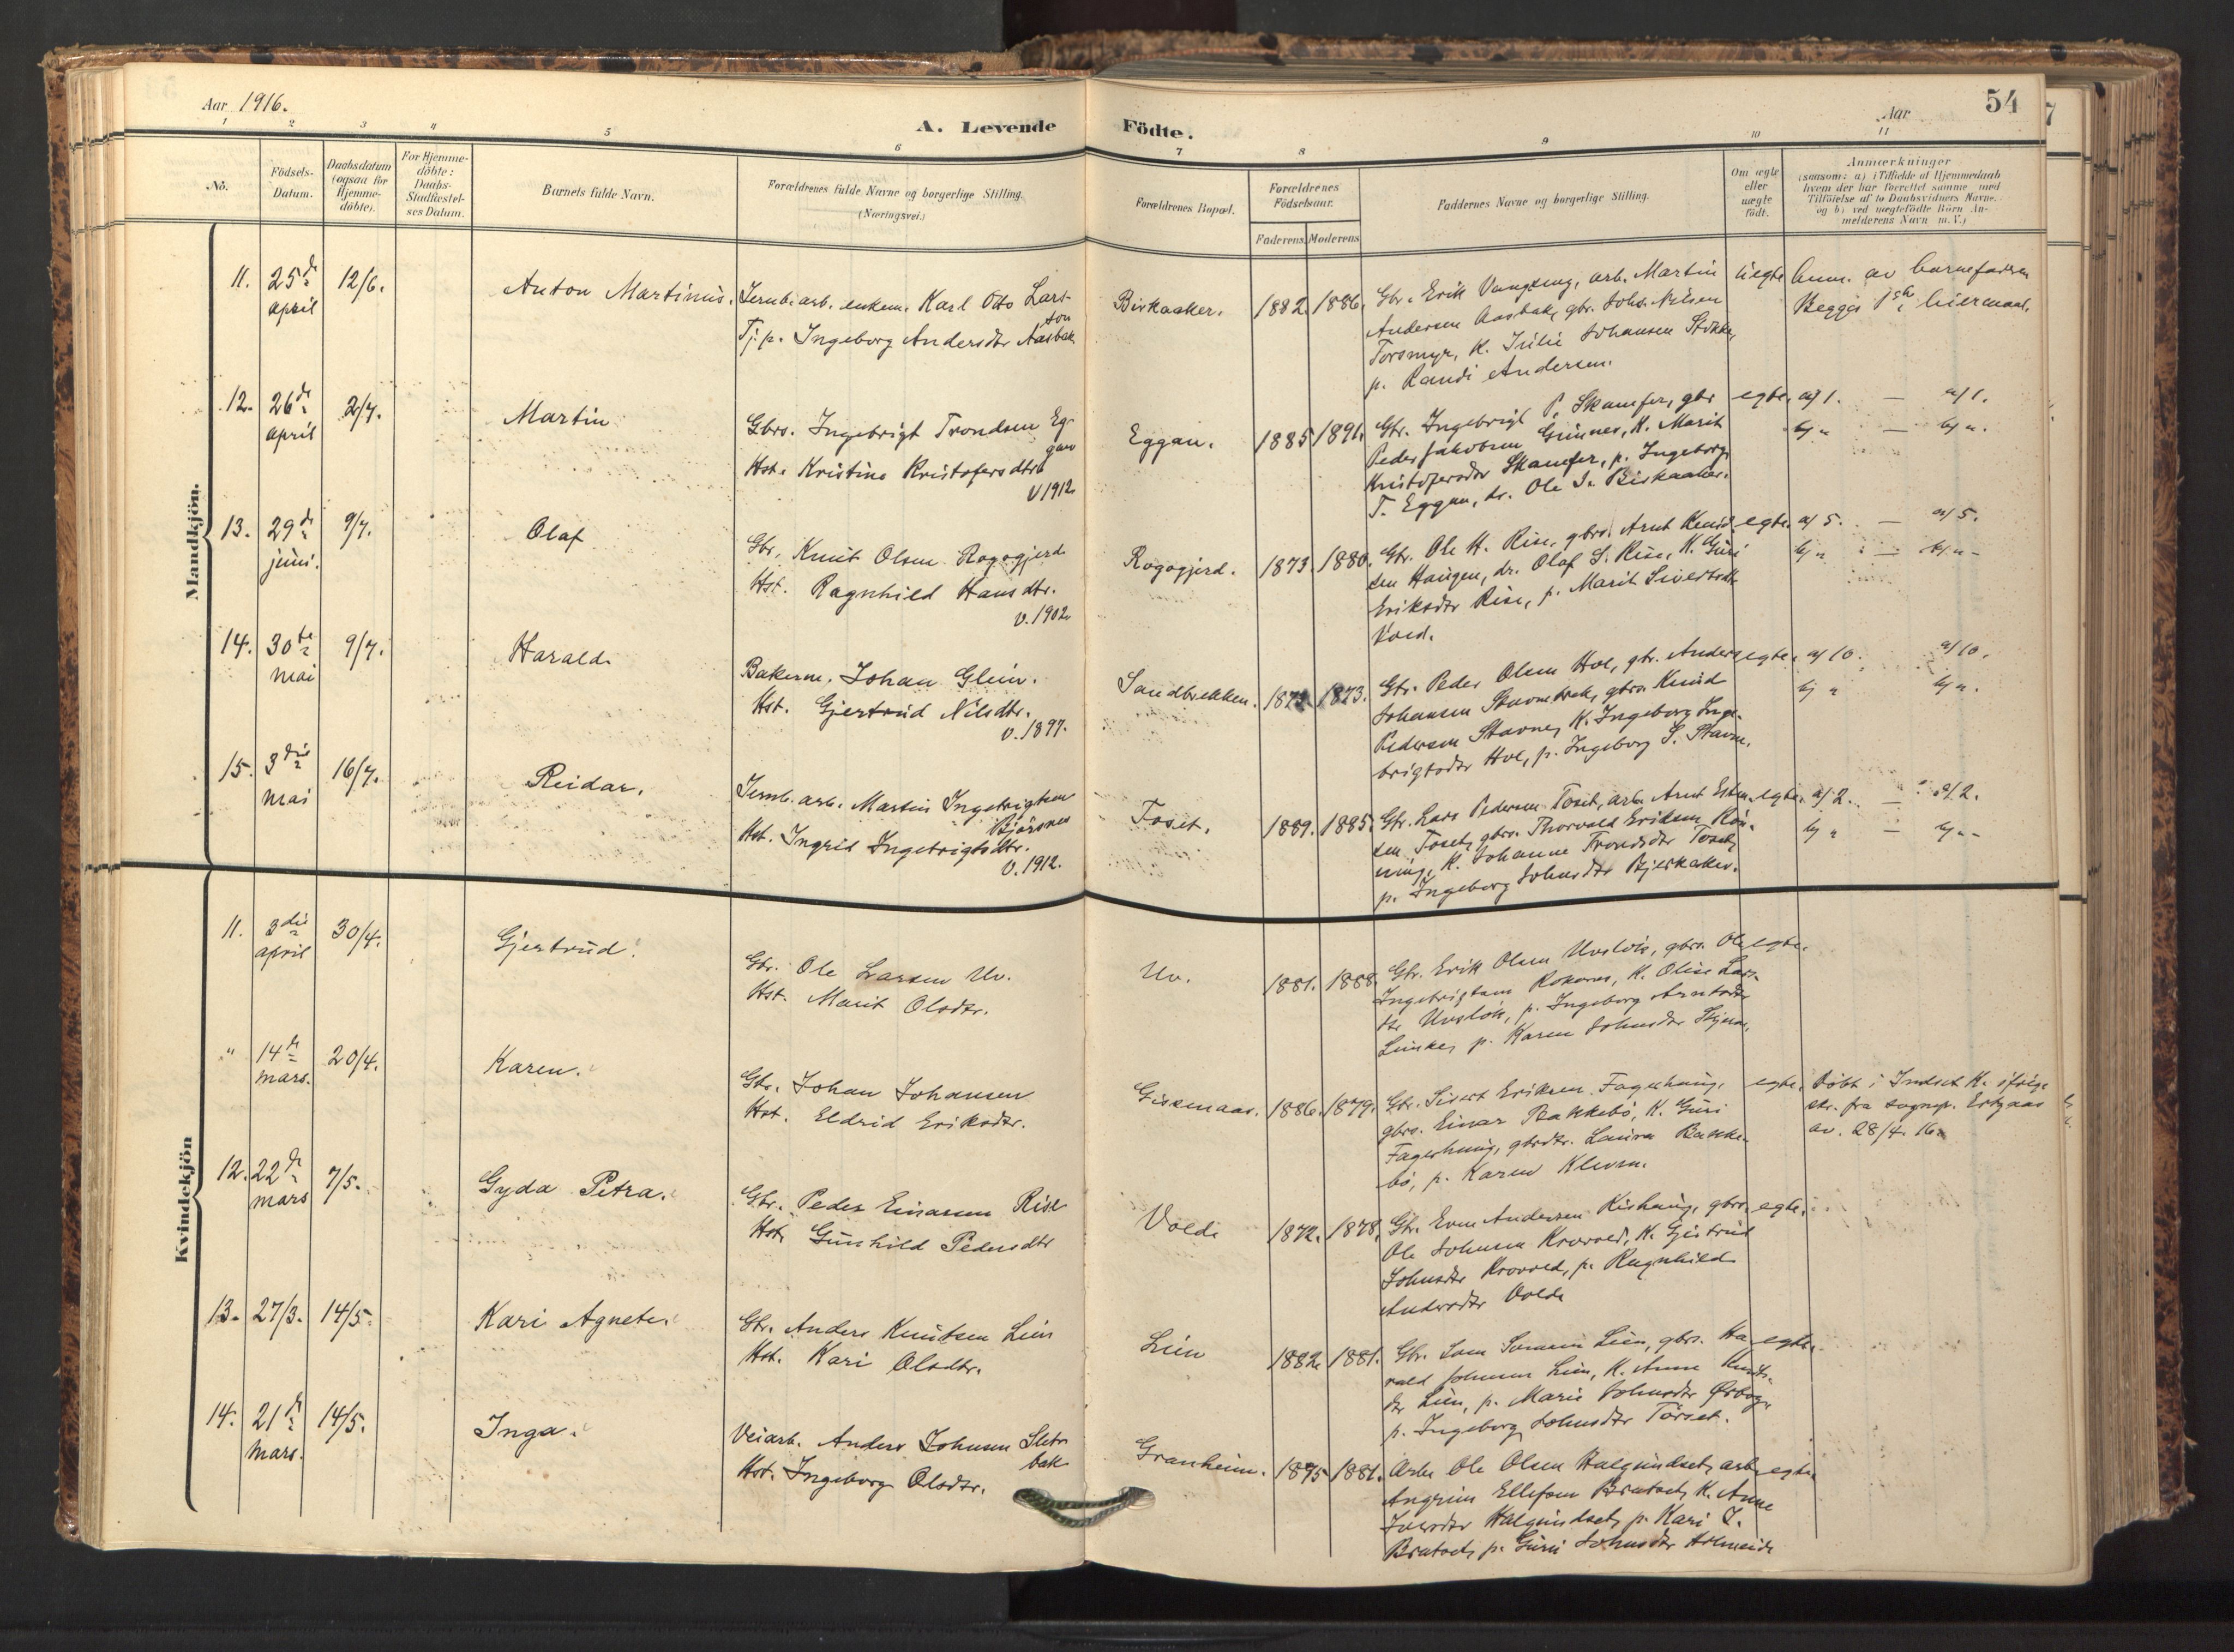 Aar 1916.
A. Levende Födte.
Aar
54
1 2 3 4 5 6 7 8 9 10 11
No.
Födsels-Datum.
Daabsdatum (ogsaa for Hjemme-döbte).
For Hjemme-döbte: Daabs-Stadfæstel-ses Datum.
Barnets fulde Navn.
Forældrenes fulde Navne og borgerlige Stilling. (Næringsvei.)
Forældrenes Bopæl.
Forældrenes Födselsaar.
Faderens. Moderens
Faddernes Navne og borgerlige Stilling.
Om ægte eller uægte födt.
Anmærkninger
(saasom: a) i Tilfælde af Hjemmedaab
hvem der har forrettet samme med
Tilföielse af to Daabsvidners Navne.
og b) ved uægtefödte Börn An-
melderens Navn m.V.)
Mandkjön.
11. 25de april 12/6. Anton Martinus. Jernb. arb. enkem. Karl Otto Lars-
son
Tj. p. Ingeborg Andersdtr Aasbak
Birkaaker. 1882. 1886.
Gbr. Erik Vangseng, arb. Martin
Andersen Aasbak, gbr. Johs. Nilsen
Torsmyr, K. Julie Johansen Stokke,
p. Randi Andersen.
uegte
Anm. av barnefaderen
Begges 1ste leiermaal.
12. 26de april 2/7. Martin Gbrs. Ingebrigt Trondsen Eg-
gan
Hst. Kristine Kristofersdtr.
v 1912.
Eggan. 1885 1891.
Gbr. Ingebrigt P. Skamfer, gbr
Peder Jakobsen Gunnes, K. Marit
Kristofersdtr Skamfer, p. Ingeborg
T. Eggan, dr. Ole I. Birkaaker.
egte. a/ 1. — a/ 1.
b/ " — b/ ".
13. 29de juni. 9/7. Olaf Gbr. Knut Olsen Rogogjerd
Hst. Ragnhild Hansdtr.
v. 1902.
Rogogjerd. 1873. 1880.
Gbr. Ole H. Rise, gbrs. Arnt Knud-
sen Haugen, dr. Olaf S. Rise, K. Guri
Eriksdtr Rise, p. Marit Sivertsdtr
Vold.
egte. a/ 5. — a/ 5.
b/ " — b/ " -
14. 30te mai 9/7. Harald. Bakerm. Johan Glein.
Hst. Gjertrud Nilsdtr.
v. 1897.
Sandbrekken. 1873. 1873.
Gbr. Peder Olsen Hol, gbr. Anders
Johansen Stavnebrek, gbrs. Knud
Pedersen Stavne, K. Ingeborg Inge-
brigtsdtr Hol, p. Ingeborg S. Stavne.
egte. a/ 10. a/ 10.
b/ " b/ ".
15. 3die mai 16/7. Reidar. Jernb. arb. Martin Ingebrigtsen
Bjørsnes
Hst. Ingrid Ingebrigtsdtr.
v. 1912.
Toset. 1889. 1885.
Gbr. Lars Pedersen Toset, arb. Arnt Esten-
sen Toset, gbrs. Thorvald Eriksen Røn-
ning, K. Johanne Trondsdtr Toset,
p. Ingeborg Johnsdtr Bjerkaker.
egte. a/ 2. — a/ 2.
b/ " — b/ " -
Kvindekjön
11. 3die april 30/4. Gjertrud. Gbr. Ole Larsen Uv.
Hst. Marit Olsdtr.
Uv. 1881. 1888.
Gbr. Erik Olsen Uvsløk, gbrs. Ole
Ingebrigtsen Rokones, K. Oline Lars-
dtr Uvsløk, p. Ingeborg Arntsdtr
p. Karen Johnsdtr
egte.
" 14de mars. 20/4. Karen. Gbr. Johan Johansen
Hst. Eldrid Eriksdtr.
Gissmaas. 1886. 1879.
Gbr. Sivert Eriksen Fagerhaug,
gbrs. Einar Bakkebø, K. Guri
Fagerhaug, gbrdtr. Laura Bakke-
bø, p. Karen Klevn.
egte. Døbt i Indset K. ifølge
skr. fra sognepr.
av. 28/4. 16.
12. 22de mars 7/5. Gyda Petra. Gbr. Peder Einarsen Rise
Hst. Gunhild Pedersdtr
Volde 1872. 1878.
Gbr. Even Andersen Rishaug, gbrs.
Ole Johnsen Krovold, K. Gjertrud
Johnsdtr Krovold, p. Ragnhild
Andersdtr Volde
egte.
13. 27/3. 14/5. Kari Agnete. Gbr. Anders Knutsen Lien
Hst. Kari Olsdtr.
Lien 1882. 1881.
Gbr. Lien, gbrs. Ha-
rald Johnsen Lien, K. Anne Knuts-
dtr Lien, p. Marie Johnsdtr
p. Ingeborg Johnsdtr Tørset.
egte.
14. 21de mars. 14/5. Inga. Veiarb. Anders Johnsen Slet-
bak
Hst. Ingeborg Olsdtr.
Granheim. 1875 1881.
Arb. Ole Olsen Halgundset, arb.
Angrim Ellefsen Bratset, K. Anne
Iversdtr Halgundset, p. Kari J.
Bratset, p. Guri Johnsdtr
egte.